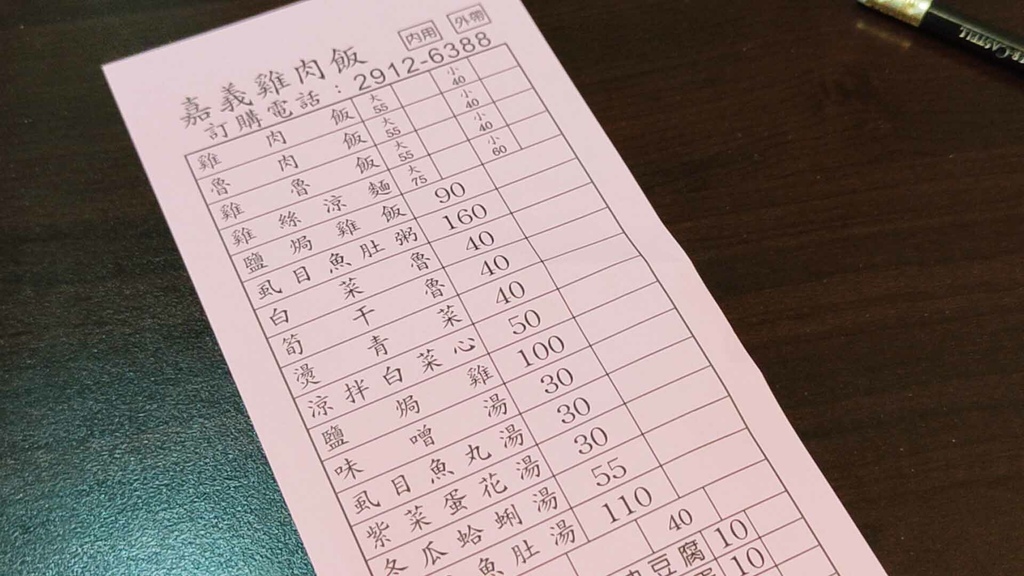 內用 外帶
嘉義雞肉飯
訂購電話：2912-6388
雞肉飯 大55 小40
魯肉飯 大55 小40
雞魯飯 大55 小40
雞絲涼麵 大75 小60
鹽焗雞飯 90
虱目魚肚粥 160
白菜魯 40
筍干魯 40
燙青菜 40
涼拌白菜心 50
鹽焗雞 100
味噌湯 30
虱目魚丸湯 30
紫菜蛋花湯 30
冬瓜蛤蜊湯 55
魚肚湯 110
40
豆腐 10
10